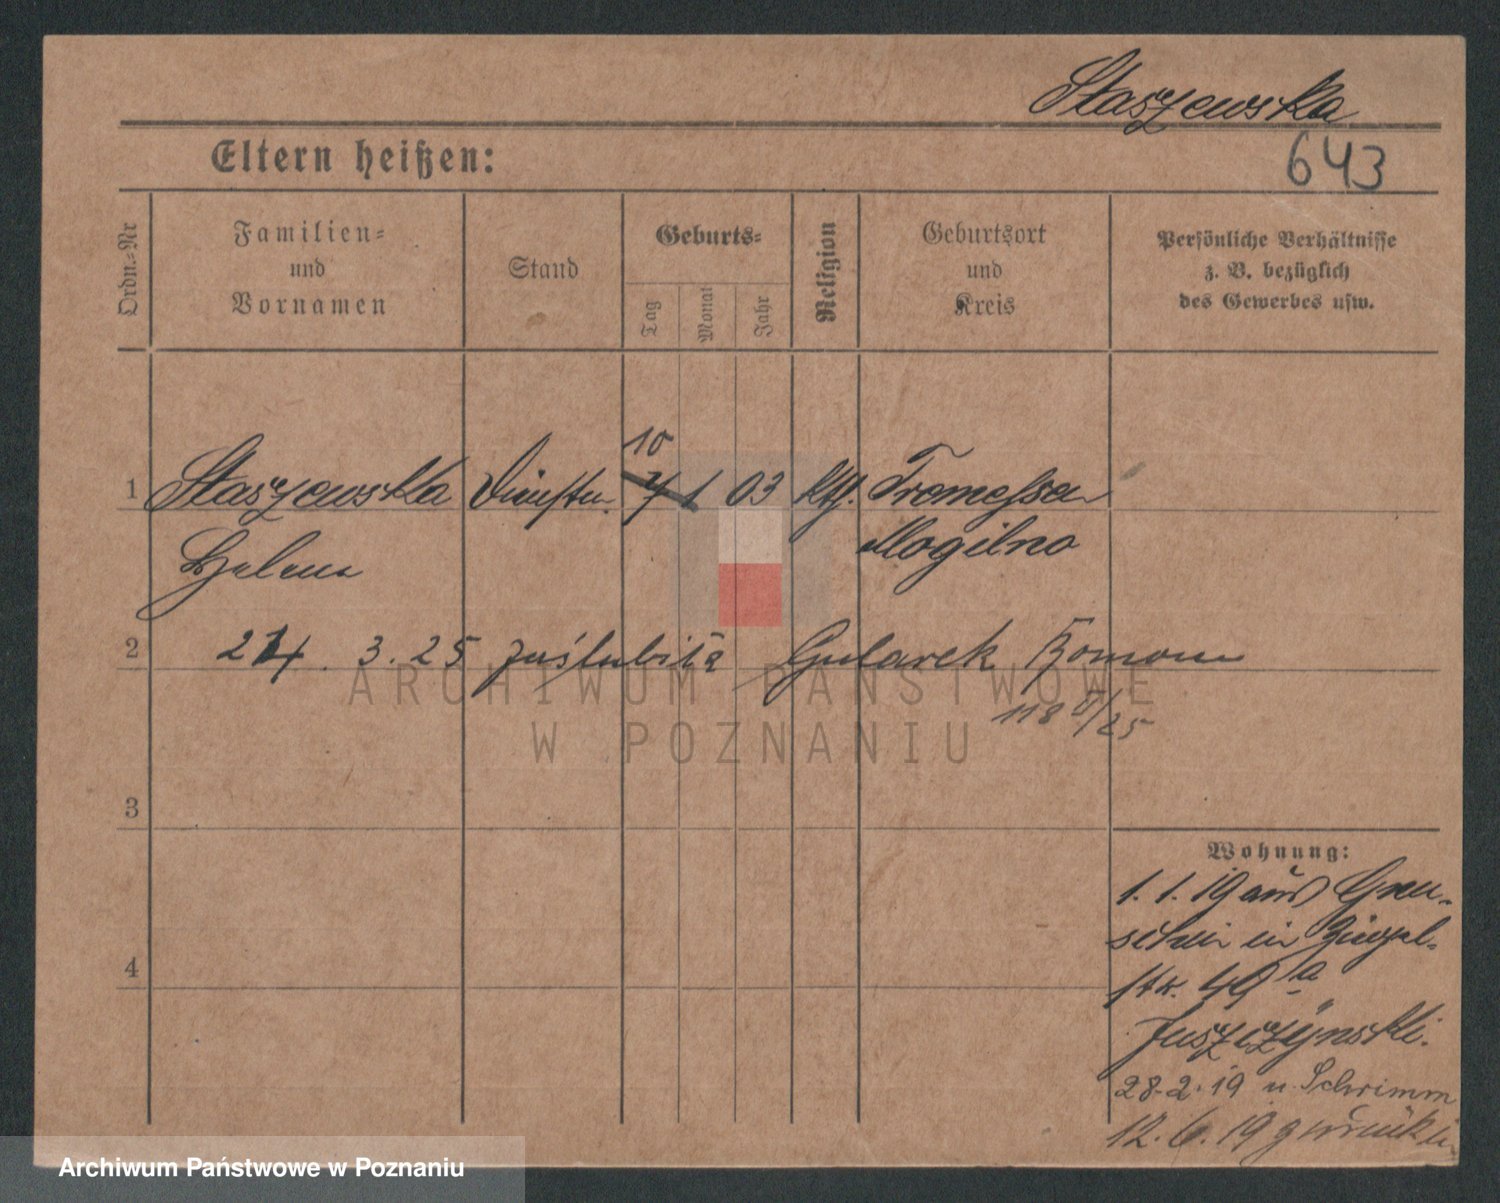 Staszewska
643
Eltern heißen:
Ordn.-Nr
Familien-
und
Vornamen
Stand
Geburts-
Tag
Monat
Jahr
Religion
Geburtsort
und
Kreis
Persönliche Verhältnisse
z. B. bezüglich
des Gewerbes usw.
10
1 Staszewska Dienstm. 7 1 03 kth. Tremessen
Helena Mogilno
2 24. 3. 25 zaślubiła Gularek Roman
118 V/25
3
Wohnung:
1. 1. 19 aus Gru-
schin in Ziegel-
4
str. 49a
Juszczynski.
28.2.19 n. Schrimm
12. 6. 19 zurück
ARCHIWUM PAŃSTWOWE
W POZNANIU
Archiwum Państwowe w Poznaniu